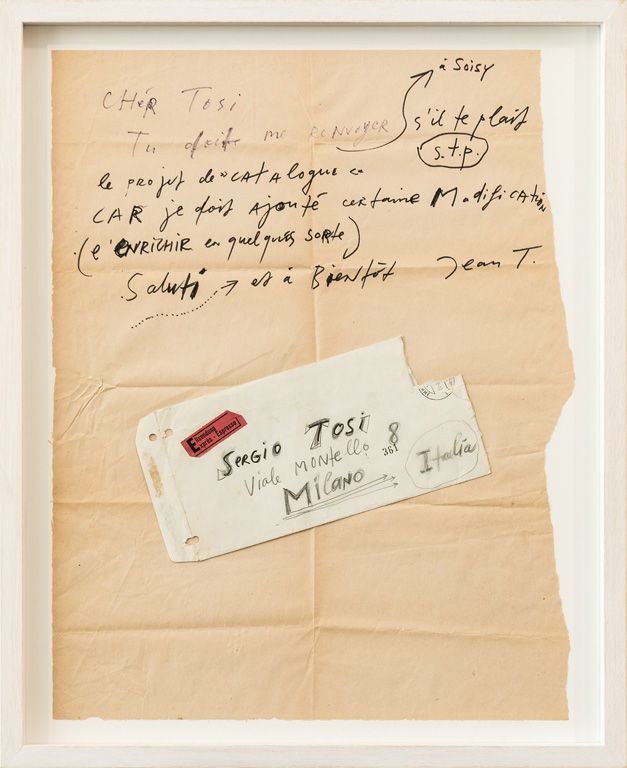 à Soisy
CHER Tosi
Tu doit me RENVOYER s'il te plait
s.t.p.
le PROJET de "CATALOGUE"
CAR je doit AJOUTÉ certaine ModificATION
(l'ENRICHIR en quelques SORTE)
Saluti → et à BIENtôt Jean T.
Eilsendung
Exprès - Espresso
SERGIO TOSI
Viale MONTELLO 8
361
MilANO
Italia